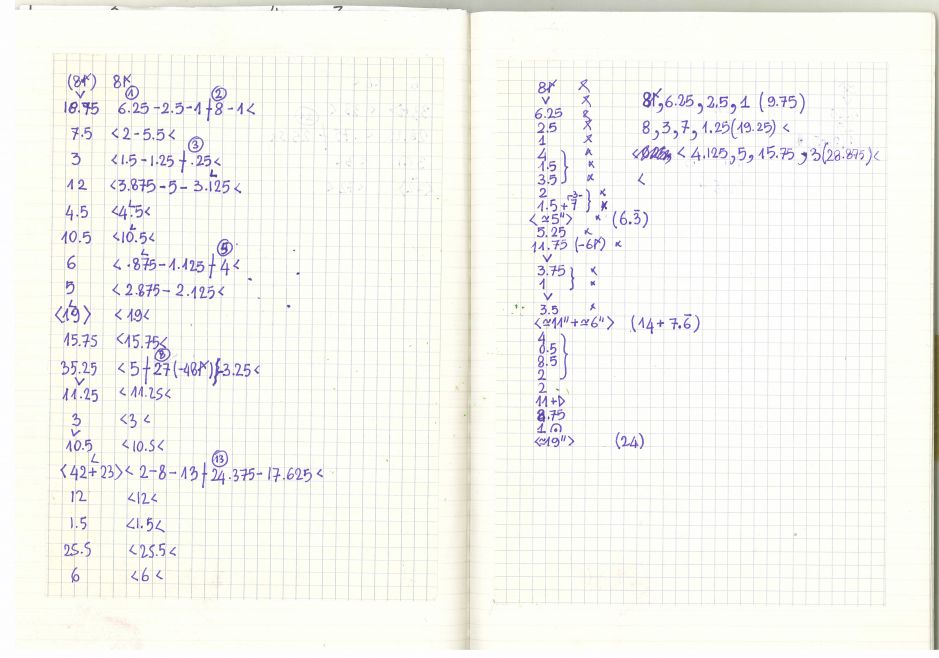 (8r) 8r
① ②
18.75 6.25-2.5-1+8-1<
7.5 <2-5.5<
③
3 <1.5-1.25+.25<
12 <3.875-5-3.125<
4.5 <4.5<
10.5 <10.5<
⑤
6 <.875-1.125+4<
5 <2.875-2.125<
<19> <19<
15.75 <15.75<
⑧
35.25 <5+27(-48r)}-3.25<
11.25 <11.25<
3 <3<
10.5 <10.5<
⑬
<42+23> <2-8-13+24.375-17.625<
12 <12<
1.5 <1.5<
25.5 <25.5<
6 <6<
8r x
v x
6.25 x
2.5 x
1 x
4 x
1.5 x
3.5 x
2 x
1.5+7 x
<≃5"> x (6.3̄)
5.25 x
11.75 (-6r) x
v
3.75 x
1 x
v
3.5 x
<≃11"+≃6"> (14+7.6̄)
4
0.5
8.5
2
2
11+▷
8.75
1
<≃19"> (24)
8r, 6.25, 2.5, 1 (9.75)
8, 3, 7, 1.25 (19.25) <
< 4.125, 5, 15.75, 3 (28.875) <
<